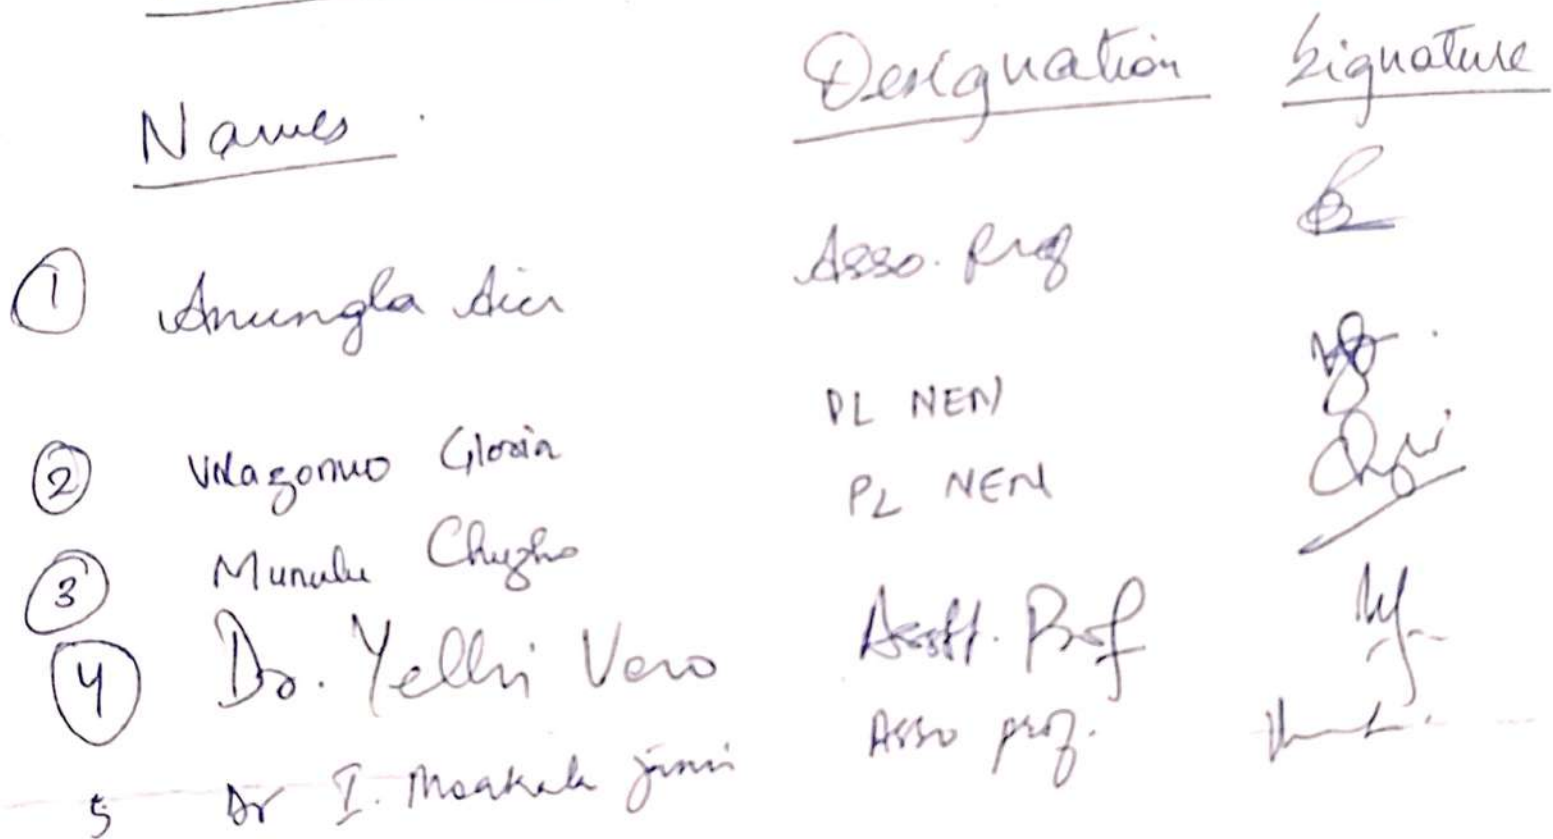 Names. Designation Signature
1 Anungla Aier Asso. Prof
2 Gloria PL NEN
3 Munulu Chuzho PL NEN
4 Dr. Yelhi Vero Asstt. Prof
5 Dr I. Moakala Jamir Asso prof.